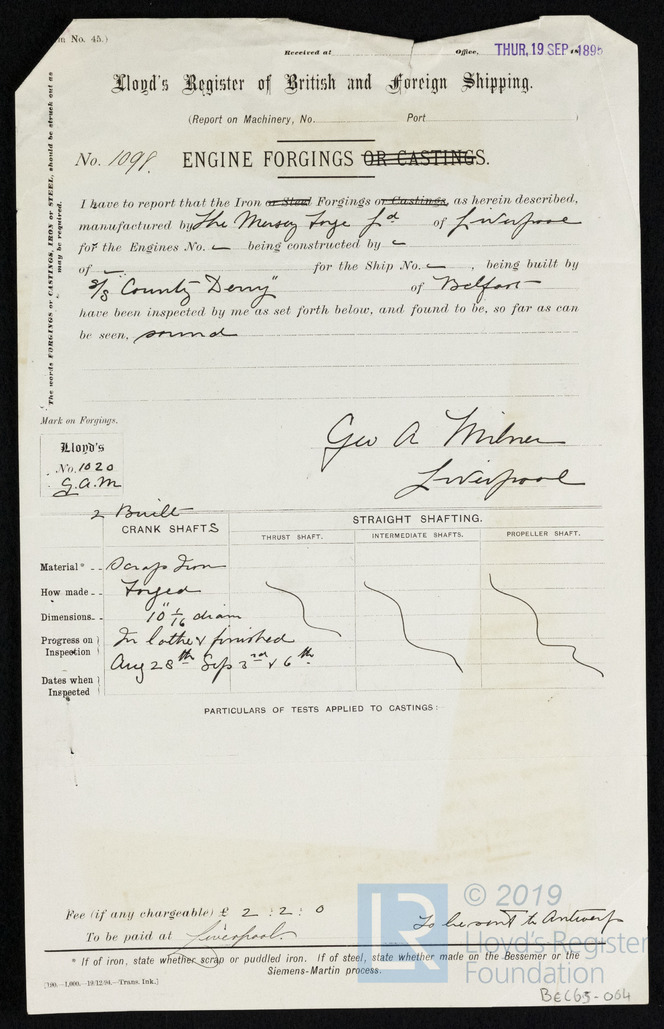 m No. 45.)
Received at Office, THUR, 19 SEP 1895
Lloyd's Register of British and Foreign Shipping.
(Report on Machinery, No. Port )
No. 1098. ENGINE FORGINGS OR CASTINGS.
The words FORGINGS or CASTINGS, IRON or STEEL, should be struck out as
may be required.
I have to report that the Iron or Steel Forgings or Castings, as herein described,
manufactured by The Mersey Forge Ld of Liverpool
for the Engines No. being constructed by
of for the Ship No. , being built by
S/S "County Derry" of Belfast
have been inspected by me as set forth below, and found to be, so far as can
be seen, sound
Mark on Forgings.
Geo A Milner
Liverpool
Lloyd's
No. 1020
G.A.M
2 Built
CRANK SHAFTS STRAIGHT SHAFTING.
THRUST SHAFT. INTERMEDIATE SHAFTS. PROPELLER SHAFT.
Material* Scrap Iron
How made Forged
Dimensions 10 1/16" diam
Progress on Inspection In lathe & finished
Dates when Inspected Aug 28th Sep 3rd & 6th
PARTICULARS OF TESTS APPLIED TO CASTINGS:
Fee (if any chargeable) £ 2 : 2 : 0
To be sent to Antwerp
To be paid at Liverpool.
* If of iron, state whether scrap or puddled iron. If of steel, state whether made on the Bessemer or the
Siemens-Martin process.
[190.—1,000.—19/12/94.—Trans. Ink.]
LR © 2019
Lloyd's Register
Foundation
BEC65-064